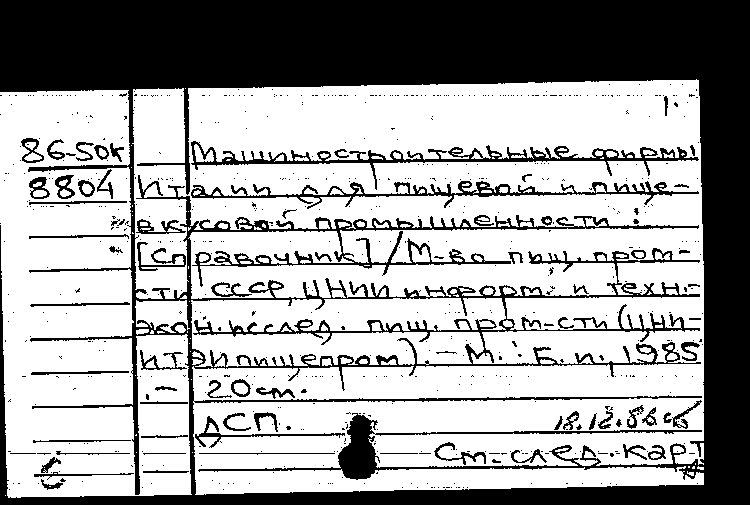 1.
86-50к Машиностроительные фирмы
8804 Италии для пищевой и пище-
вкусовой промышленности :
[Справочник] / М-во пищ. пром-
сти СССР, ЦНИИ информ. и техн.-
экон. исслед. пищ. пром-сти (ЦНИ-
ИТЭИпищепром). - М. : Б. и., 1985
. - 20 см.
ДСП. 18.12.86
См. след. карт